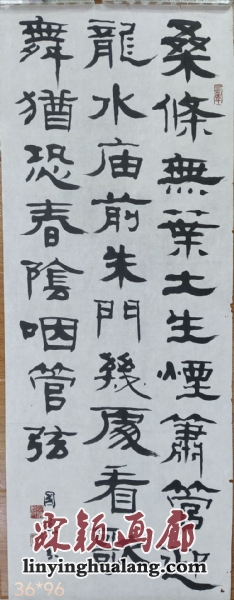 桑條無葉土生煙簫管迎
龍水庙前朱門幾處看歌
舞猶恐春陰咽管弦
霖颖画廊
linyinghualang.com
36*96